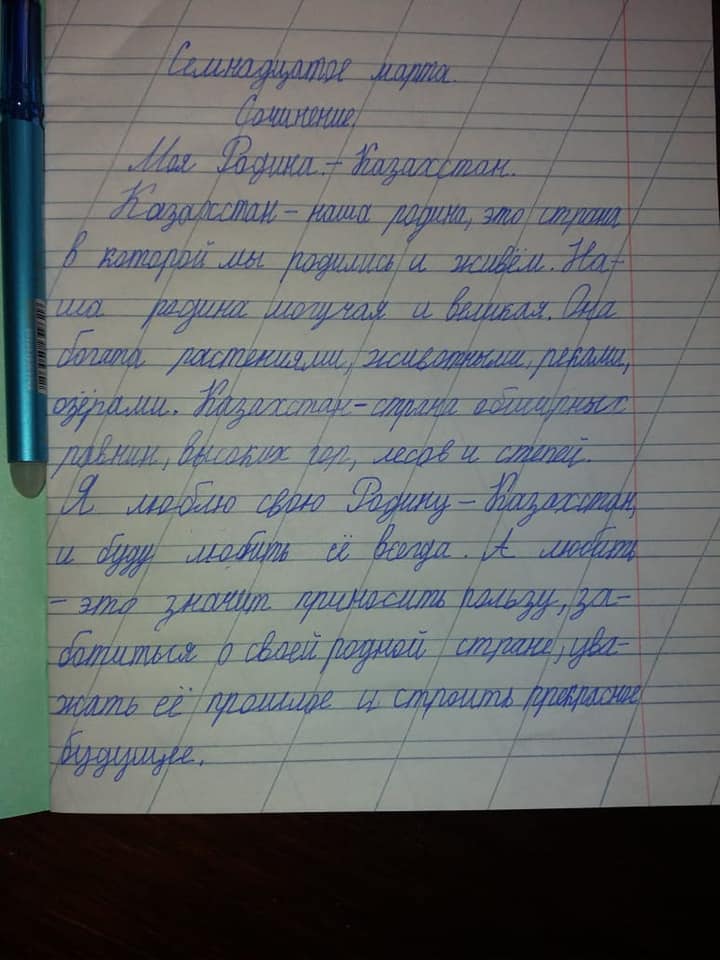 Семнадцатое марта.
Сочинение.
Моя Родина - Казахстан.
Казахстан - наша родина, это страна
в которой мы родились и живём. На-
ша родина могучая и великая. Она
богата растениями, животными, реками,
озёрами. Казахстан - страна обширных
равнин, высоких гор, лесов и степей.
Я люблю свою Родину - Казахстан,
и буду любить её всегда. А любить
- это значит приносить пользу, за-
ботиться о своей родной стране, ува-
жать её прошлое и строить прекрасное
будущее.